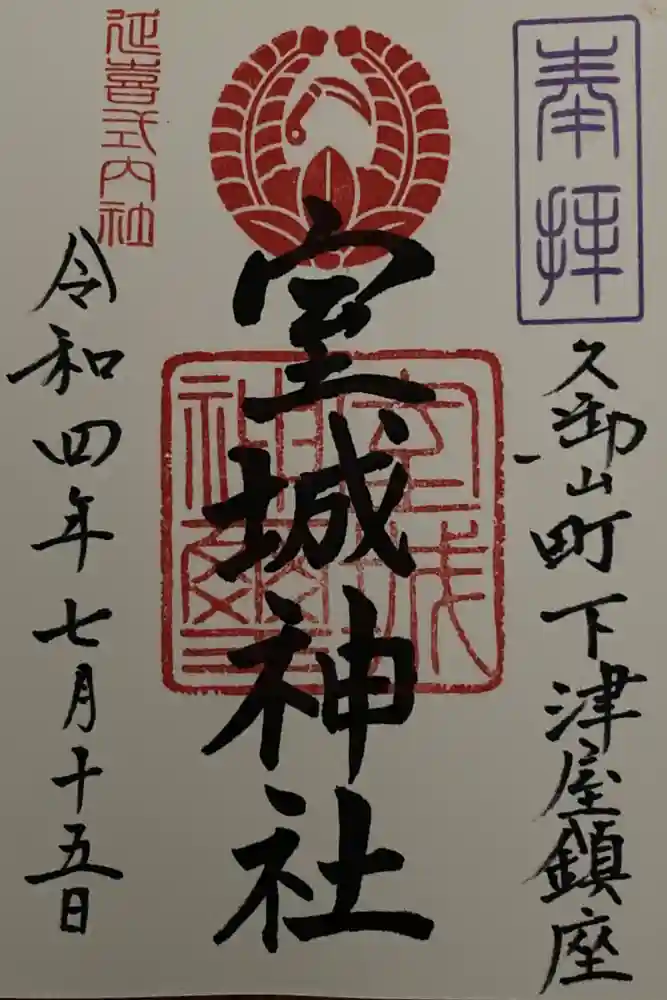 奉拝
久御山町下津屋鎮座
室城神社
室城神璽
延喜式内社
令和四年七月十五日